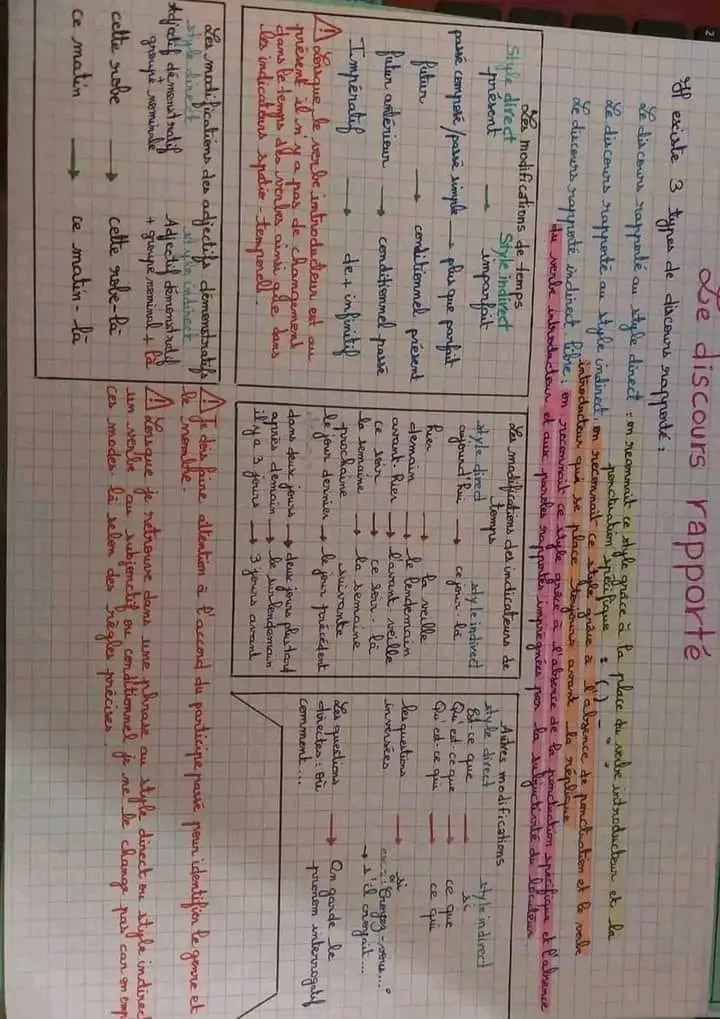 Le discours rapporté
Il existe 3 types de discours rapporté :
Le discours rapporté au style direct : on reconnait ce style grâce à la place du verbe introducteur et la
ponctuation spécifique : « » ( ) -
Le discours rapporté au style indirect : on reconnait ce style grâce à l'absence de ponctuation et le verbe
introducteur qui se place toujours avant la réplique
Le discours rapporté indirect libre : on reconnait ce style grâce à l'absence de la ponctuation spécifique et l'absence
du verbe introducteur et aux paroles rapportées imprégnées par la subjectivité du locuteur
Les modifications de temps
Style direct Style indirect
présent → imparfait
passé composé / passé simple → plus que parfait
futur → conditionnel présent
futur antérieur → conditionnel passé
Impératif → de + infinitif
⚠ Lorsque le verbe introducteur est au
présent il n'y a pas de changement
dans le temps des verbes ainsi que dans
les indicateurs spatio-temporels.
Les modifications des adjectifs démonstratifs
style direct style indirect
Adjectif démonstratif Adjectif démonstratif
+ groupe nominale + groupe nominal + là
cette robe → cette robe-là
ce matin → ce matin-là
Les modifications des indicateurs de
temps
style direct style indirect
aujourd'hui → ce jour-là
hier → la veille
demain → le lendemain
avant-hier → l'avant-veille
ce soir → ce soir-là
la semaine → la semaine
prochaine suivante
le jour dernier → le jour précédent
dans deux jours → deux jours plus tard
après demain → le surlendemain
il y a 3 jours → 3 jours avant
Autres modifications
style direct style indirect
Est-ce que → si
Qu'est-ce que → ce que
Qu'est-ce qui → ce qui
les questions → si
inversées ex : Croyez-vous... ?
→ s'il croyait...
Les questions → On garde le
directes : où pronom interrogatif
comment...
⚠ Je dois faire attention à l'accord du participe passé pour identifier le genre et
le nombre.
⚠ Lorsque je retrouve dans une phrase au style direct ou style indirect
un verbe au subjonctif ou conditionnel je ne le change pas car on emp
ces modes-là selon des règles précises.